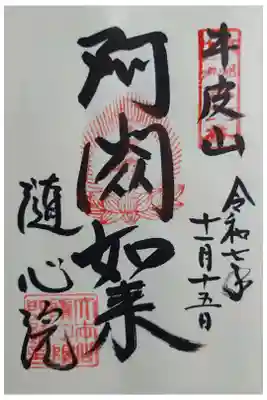 牛皮山
令和七年
十一月十五日
阿閦如来
随心院